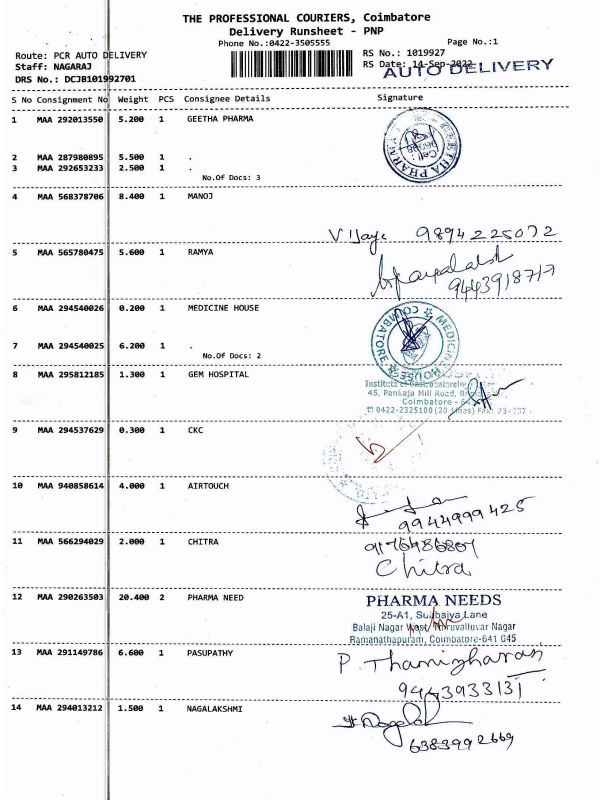 THE PROFESSIONAL COURIERS, Coimbatore
Delivery Runsheet - PNP
Phone No.:0422-3505555 Page No.:1
Route: PCR AUTO DELIVERY RS No.: 1019927
Staff: NAGARAJ RS Date: 14-Sep-2022
AUTO DELIVERY
DRS No.: DCJB101992701
S No Consignment No Weight PCS Consignee Details Signature
1 MAA 292013550 5.200 1 GEETHA PHARMA
2 MAA 287980895 5.500 1 .
3 MAA 292653233 2.500 1 .
No.Of Docs: 3
4 MAA 568378706 8.400 1 MANOJ
Vijaye 9894225072
5 MAA 565780475 5.600 1 RAMYA
9443918717
6 MAA 294540026 0.200 1 MEDICINE HOUSE
MEDICINE HOUSE COIMBATORE
7 MAA 294540025 6.200 1 .
No.Of Docs: 2
8 MAA 295812185 1.300 1 GEM HOSPITAL
Institute of
45, Pankaja Mill Road,
Coimbatore -
0422-2325100 (20 Lines)
9 MAA 294537629 0.300 1 CKC
10 MAA 940858614 4.000 1 AIRTOUCH
9944999425
11 MAA 566294029 2.000 1 CHITRA
9176486807
Chitra
12 MAA 290263503 20.400 2 PHARMA NEED
PHARMA NEEDS
25-A1, Subbaiya Lane
Balaji Nagar West, Thiruvalluvar Nagar
Ramanathapuram, Coimbatore-641 045
13 MAA 291149786 6.600 1 PASUPATHY
P. Thamizharasi
9443933131
14 MAA 294013212 1.500 1 NAGALAKSHMI
6383992669